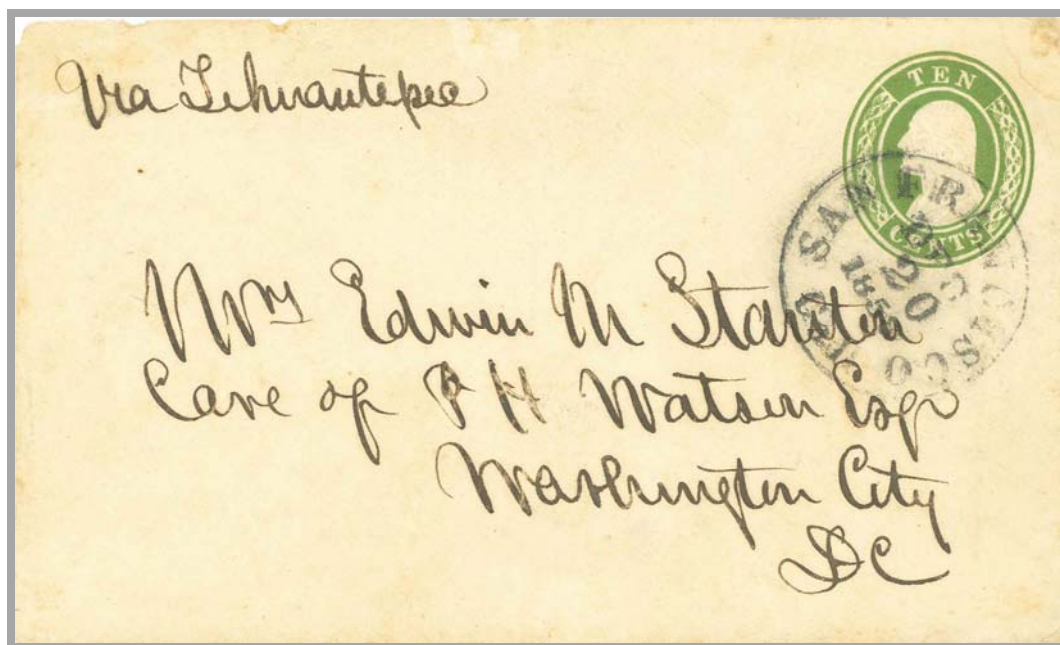 Via Tehuantepec
TEN
CENTS
SAN FRANCISCO
20
185
Mrs Edwin M Stanton
Care of P H Watson Esqr
Washington City
DC